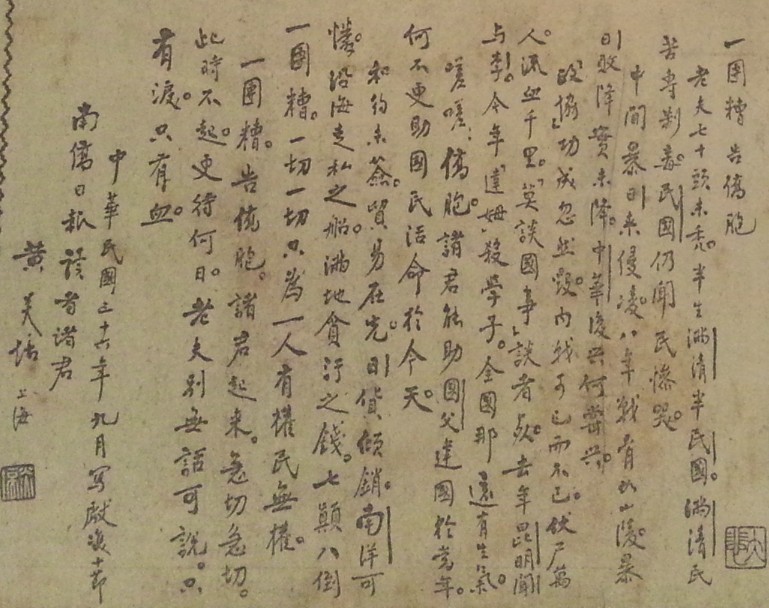 一團糟 告僑胞
老夫七十頭未禿。半生滿清半民國。滿清民
苦專制毒。民國仍聞民慘哭。
中間暴日來侵凌。八年戰骨如山陵。暴
日敗降實未降。中華復興何嘗興。
「政協」功成忽然毀。內戰可已而不已。伏尸萬
人。流血千里。「莫談國事」談者死。去年昆明聞
与李。今年「達姆」殺學子。全國那還有生氣。
嗟嗟僑胞。諸君能助國父建國於當年。
何不更助國民活命於今天。
和約未簽。貿易在先。日貨傾銷。南洋可
憐。沿海走私之船。滿地貪污之錢。七顛八倒
一團糟。一切一切只為一人有權民無權。
一團糟。告僑胞。諸君起來。急切急切。
此時不起。更待何日。老夫別無話可說。只
有淚。只有血。
中華民國三十六年九月寫獻雙十節
南僑日報讀者諸君
黃炎培 上海